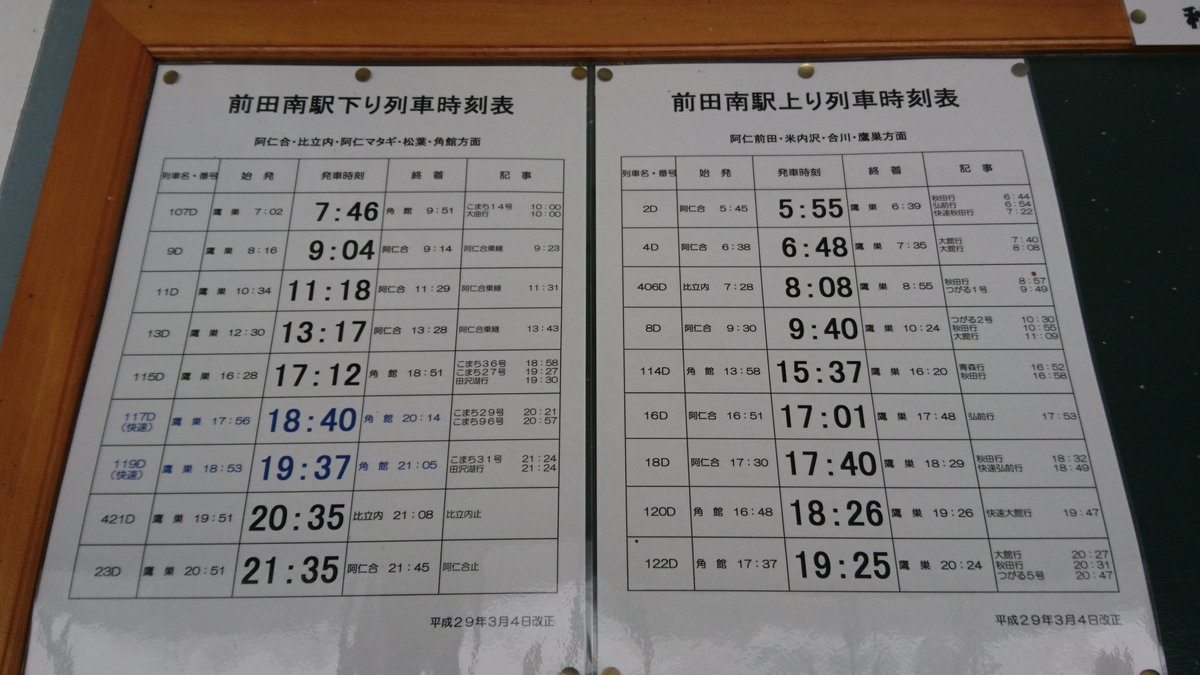 前田南駅下り列車時刻表
阿仁合・比立内・阿仁マタギ・松葉・角館方面
列車名・番号 始発 発車時刻 終着 記事
107D 鷹巣 7:02 7:46 角館 9:51 こまち14号 10:00
大曲行 10:00
9D 鷹巣 8:16 9:04 阿仁合 9:14 阿仁合乗継 9:23
11D 鷹巣 10:34 11:18 阿仁合 11:29 阿仁合乗継 11:31
13D 鷹巣 12:30 13:17 阿仁合 13:28 阿仁合乗継 13:43
115D 鷹巣 16:28 17:12 角館 18:51 こまち36号 18:58
こまち27号 19:27
田沢湖行 19:30
117D
(快速) 鷹巣 17:56 18:40 角館 20:14 こまち29号 20:21
こまち96号 20:57
119D
(快速) 鷹巣 18:53 19:37 角館 21:05 こまち31号 21:24
田沢湖行 21:24
421D 鷹巣 19:51 20:35 比立内 21:08 比立内止
23D 鷹巣 20:51 21:35 阿仁合 21:45 阿仁合止
平成29年3月4日改正
前田南駅上り列車時刻表
阿仁前田・米内沢・合川・鷹巣方面
列車名・番号 始発 発車時刻 終着 記事
2D 阿仁合 5:45 5:55 鷹巣 6:39 秋田行 6:44
弘前行 6:54
快速秋田行 7:22
4D 阿仁合 6:38 6:48 鷹巣 7:35 大館行 7:40
大館行 8:08
406D 比立内 7:28 8:08 鷹巣 8:55 秋田行 8:57
つがる1号 9:49
8D 阿仁合 9:30 9:40 鷹巣 10:24 つがる2号 10:30
秋田行 10:55
大館行 11:09
114D 角館 13:58 15:37 鷹巣 16:20 青森行 16:52
秋田行 16:58
16D 阿仁合 16:51 17:01 鷹巣 17:48 弘前行 17:53
18D 阿仁合 17:30 17:40 鷹巣 18:29 秋田行 18:32
快速弘前行 18:49
120D 角館 16:48 18:26 鷹巣 19:26 快速大館行 19:47
122D 角館 17:37 19:25 鷹巣 20:24 大館行 20:27
秋田行 20:31
つがる5号 20:47
平成29年3月4日改正